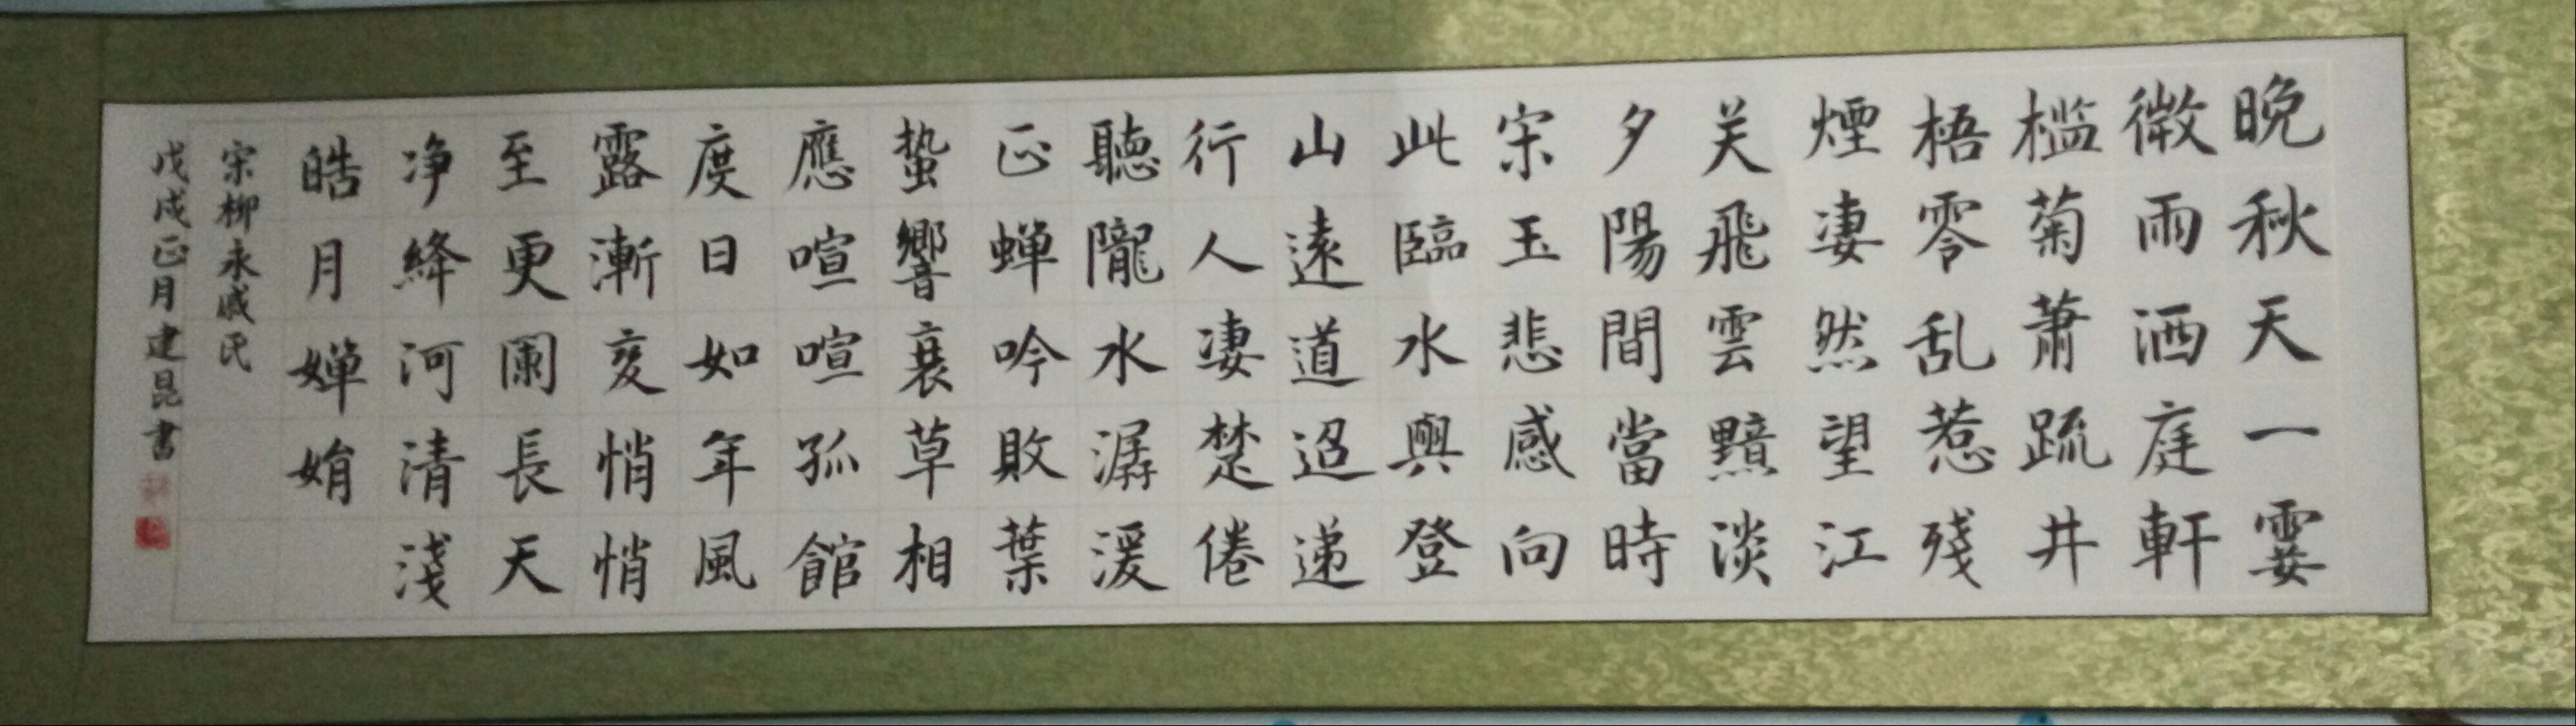 晚秋天一霎
微雨洒庭軒
槛菊蕭疏井
梧零乱惹殘
煙凄然望江
关飛雲黯淡
夕陽間當時
宋玉悲感向
此臨水與登
山遠道迢递
行人凄楚倦
聽隴水潺湲
正蝉吟敗葉
蛰響衰草相
應喧喧孤館
度日如年風
露漸変悄悄
至更闌長天
净絳河清淺
皓月嬋娟
宋柳永戚氏
戊戌正月建昆書